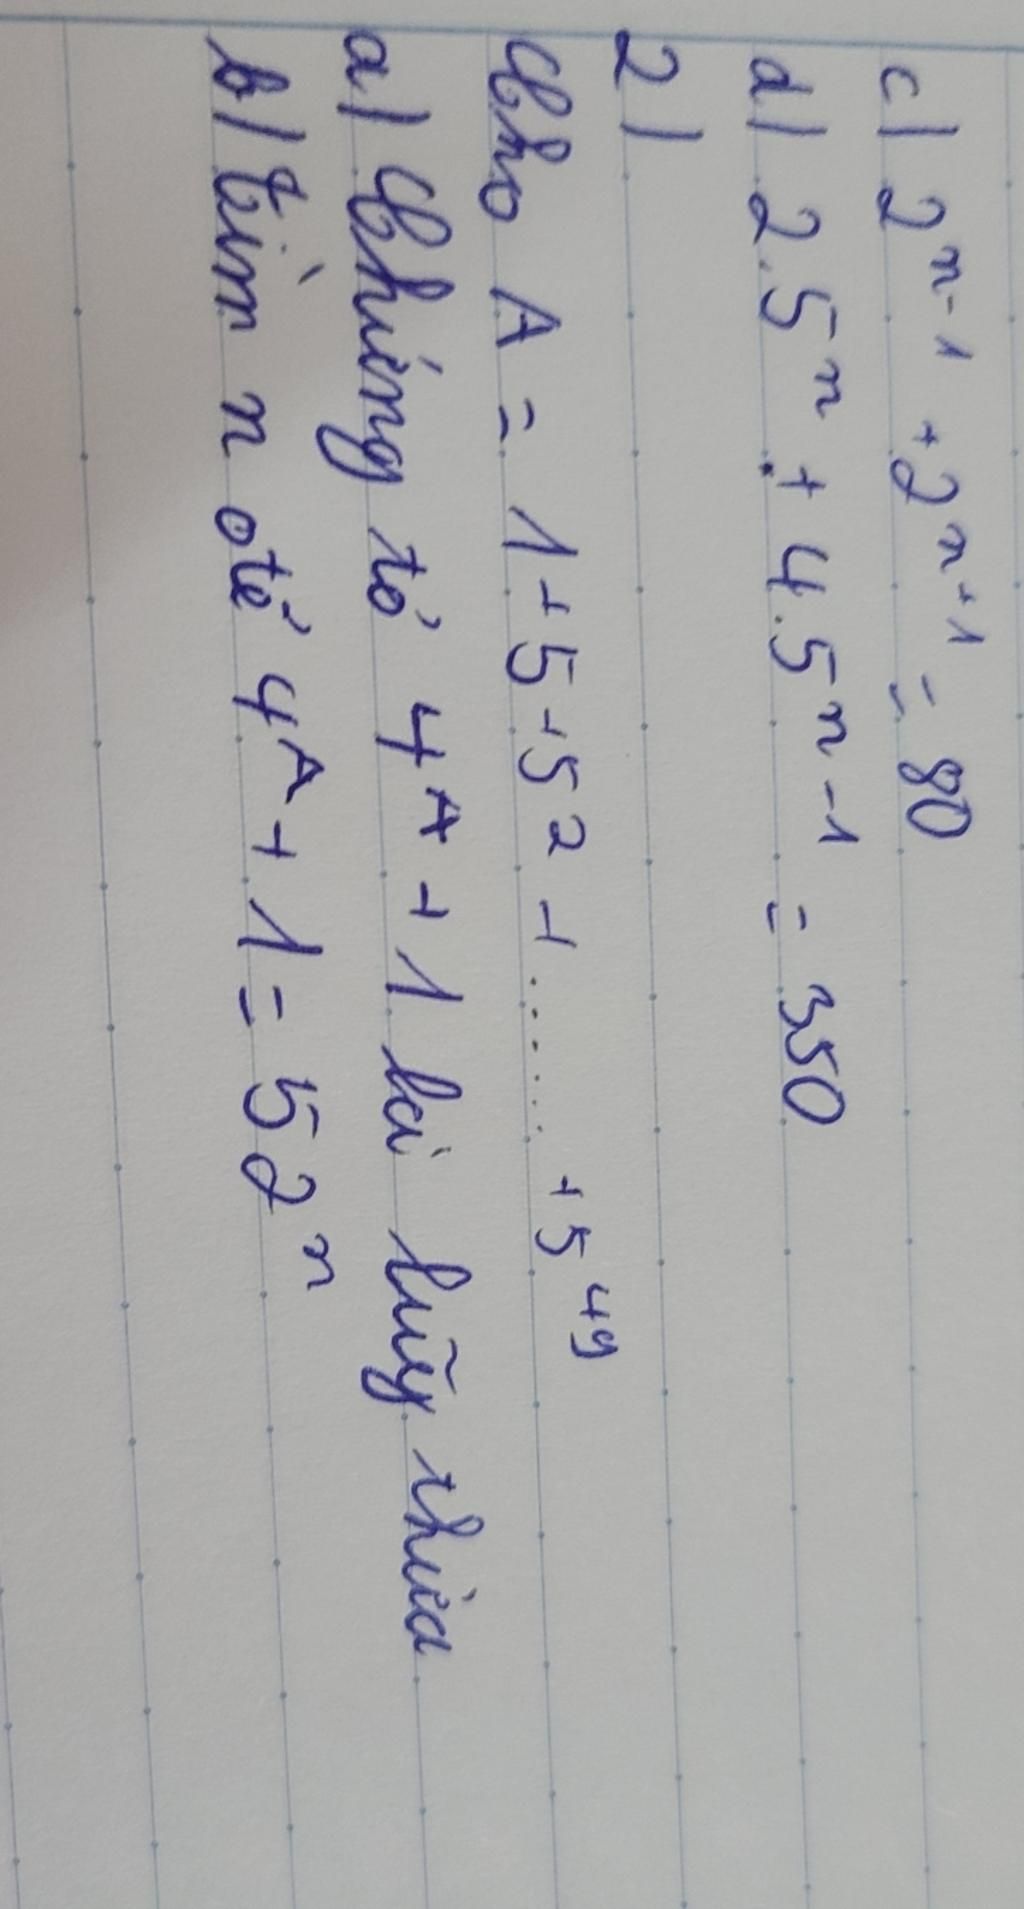 c) 2ⁿ⁻¹ + 2ⁿ⁺¹ = 80
d) 2.5ⁿ + 4.5ⁿ⁻¹ = 350
2)
Cho A = 1+5+5² + ...... + 5⁴⁹
a) Chứng tỏ 4ᴬ + 1 là lũy thừa
b) Tìm n để 4ᴬ + 1 = 52ⁿ